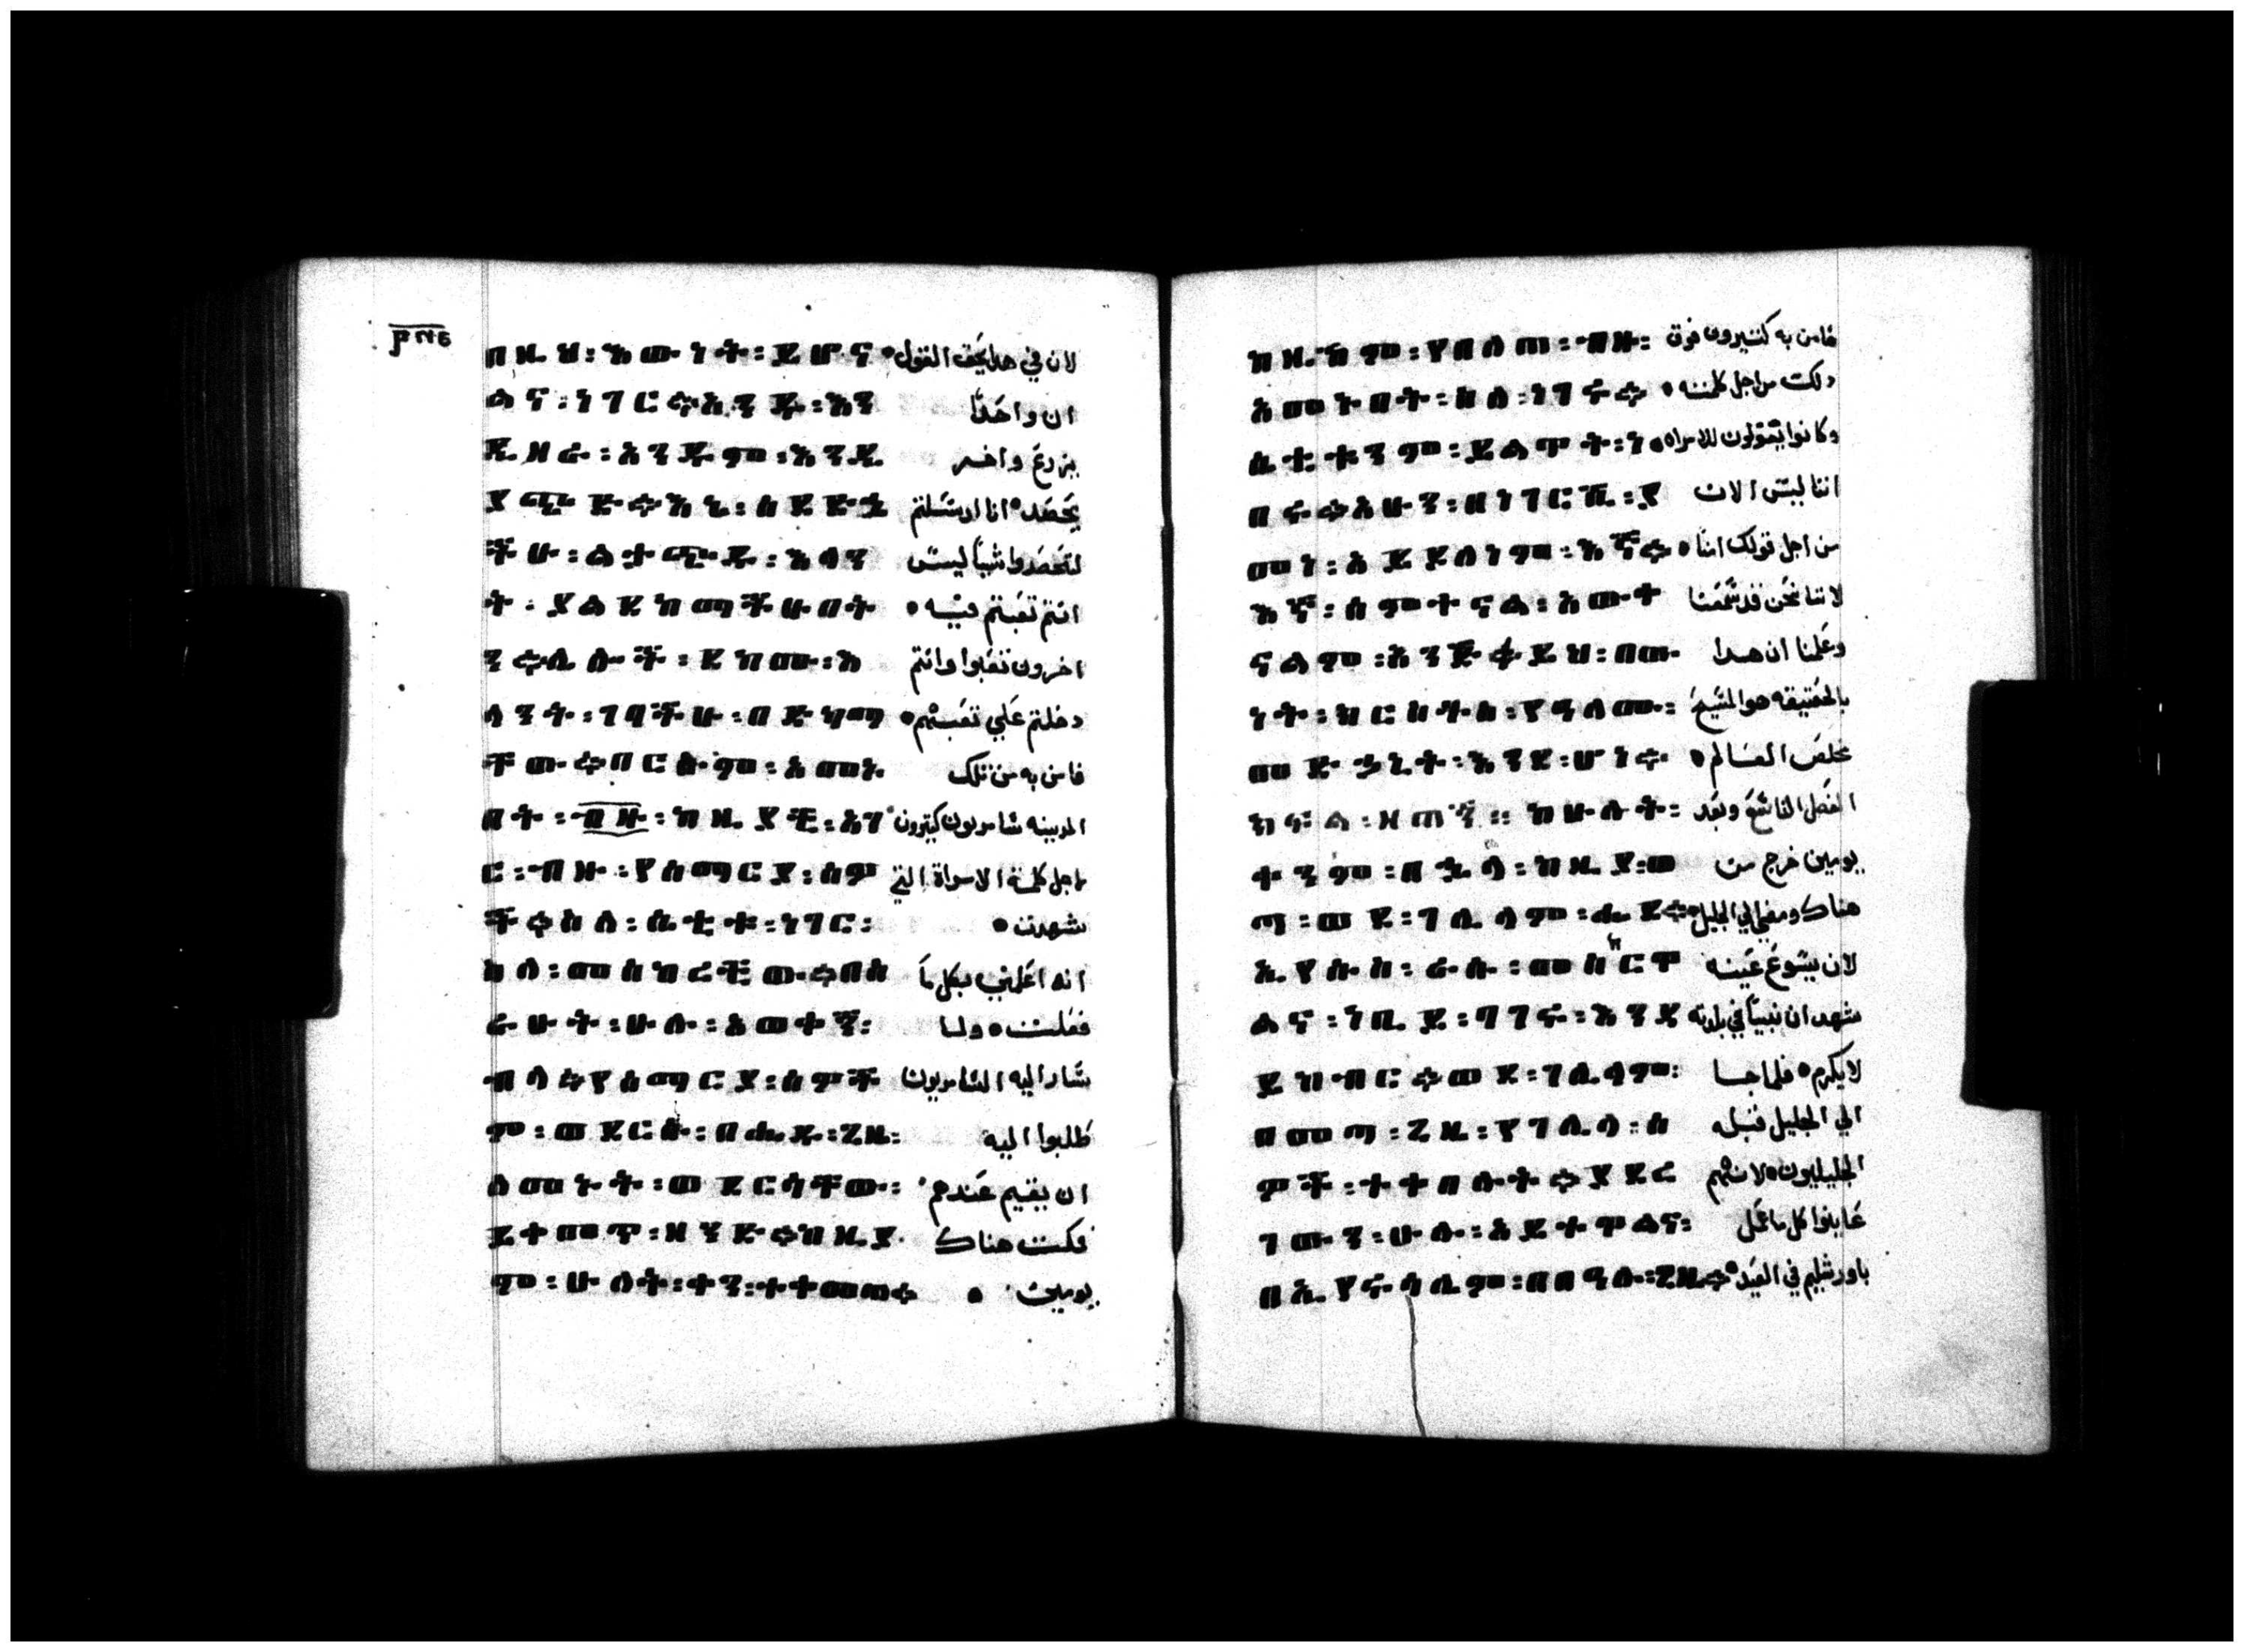 በዚህ፡እውነት፡ይሆና لان في هدا يحق القول
ልና፡ነገር።አንዱ፡እን ان واحدًا
ዲዘራ፡አንዱም፡እንዲ يزرع واخر
ያጭዱ።እኔ፡ሰደድኋ يحصد انا ارسلتم
ችሁ፡ልታጭዱ፡እለን لتحصدوا شيا ليس
ት፡ያልደከማችሁበት انتم تعبتم فيه
ን።ሌሎች፡ደከሙ፡እ اخرون تعبوا وانتم
ላንት፡ገባችሁ፡በድካማ دخلتم علي تعبهم
ቸው።በርሱም፡አመኑ فامن به من تلك
በት፡ብዙ፡ከዚያች፡አገ المدينه سامريون كتيرون
ር፡ብዙ፡የሰማርያ፡ሰዎ اجل كلمة الامراة التي
ች።ስለ፡ሴቲቱ፡ነገር፡ شهدت
ስለ፡መሰከረችው።በሰ انه اعلمني بكل ما
ራሁት፡ሁሉ፡አወቀኝ፡ فعلت ولما
ብላ።የሰማርያ፡ሰዎች سار اليه السامريون
ም፡ወደርሱ፡በሔዱ፡ጊዜ፡ طلبوا اليه
ለመኑት፡ወደርሳቸው፡ ان يقيم عندهم
ይቀመጥ፡ዘንድ።ከዚያ فمكت هناك
ም፡ሁለት፡ቀን፡ተቀመጠ። يومين
ከዚከም፡የበለጠ፡ብዙ፡ فامن به كتيرون فوق
አመኑበት፡ስለ፡ነገሩ። دلك من اجل كلمته
ሴቲቱንም፡ይልዋት፡ነ وكانوا يقولون للامراه
በሩ።አሁን፡በነገርሽ፡ያ اننا ليس الان
መነ፡አይደለንም፡እኛ። من اجل قولك امنا
እኛ፡ሰምተናል፡አውቀ لاننا نحن قد سمعنا
ናልም፡እንደ፡ይህ፡በው وعلمنا ان هدا
ነት፡ክርስቶስ፡የዓለሙ፡ بالحقيقه هو المسيح
መድኃኒት፡እንደ፡ሆነ። مخلص العالم
ክፋል፡ዘጠኝ፡፡ ከሁለት፡ الفصل التاسع وبعد
ቀንም፡በኋላ፡ከዚያ፡ወ يومين خرج من
ጣ፡ወደ፡ገሊላም፡ሔደ። هناك ومضي الي الجليل
ኢየሱስ፡ራሱ፡መስክርዋ لان يسوع عينه
ልና፡ነቢይ፡በገሩ፡እንዳ شهد ان نبيا في بلدته
ይከብር።ወደ፡ገሊላም፡ لا يكرم فلما جا
በመጣ፡ጊዜ፡የገሊላ፡ሰ الي الجليل قبله
ዎች፡ተቀበሉት።ያደረ الجليليون لانهم
ገውን፡ሁሉ፡አይተዋልና፡ عاينوا كل ما عمل
በኢየሩሳሌም፡በበዓሉ፡ጊዜ። باورشليم في العيد